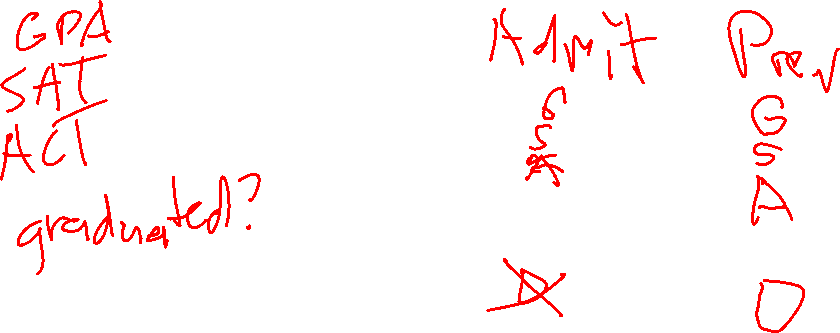 GPA
SAT
ACT
graduated?
Admit
G
S
A
Prev
G
S
A
D